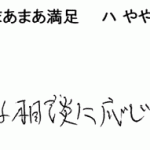 まあまあ満足 ハ やや
相談に応じ